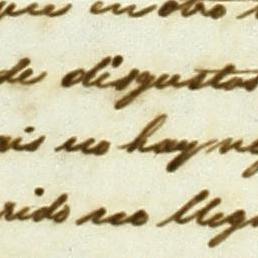 que en otro
de disgustos
ais no hay
rido no lleg